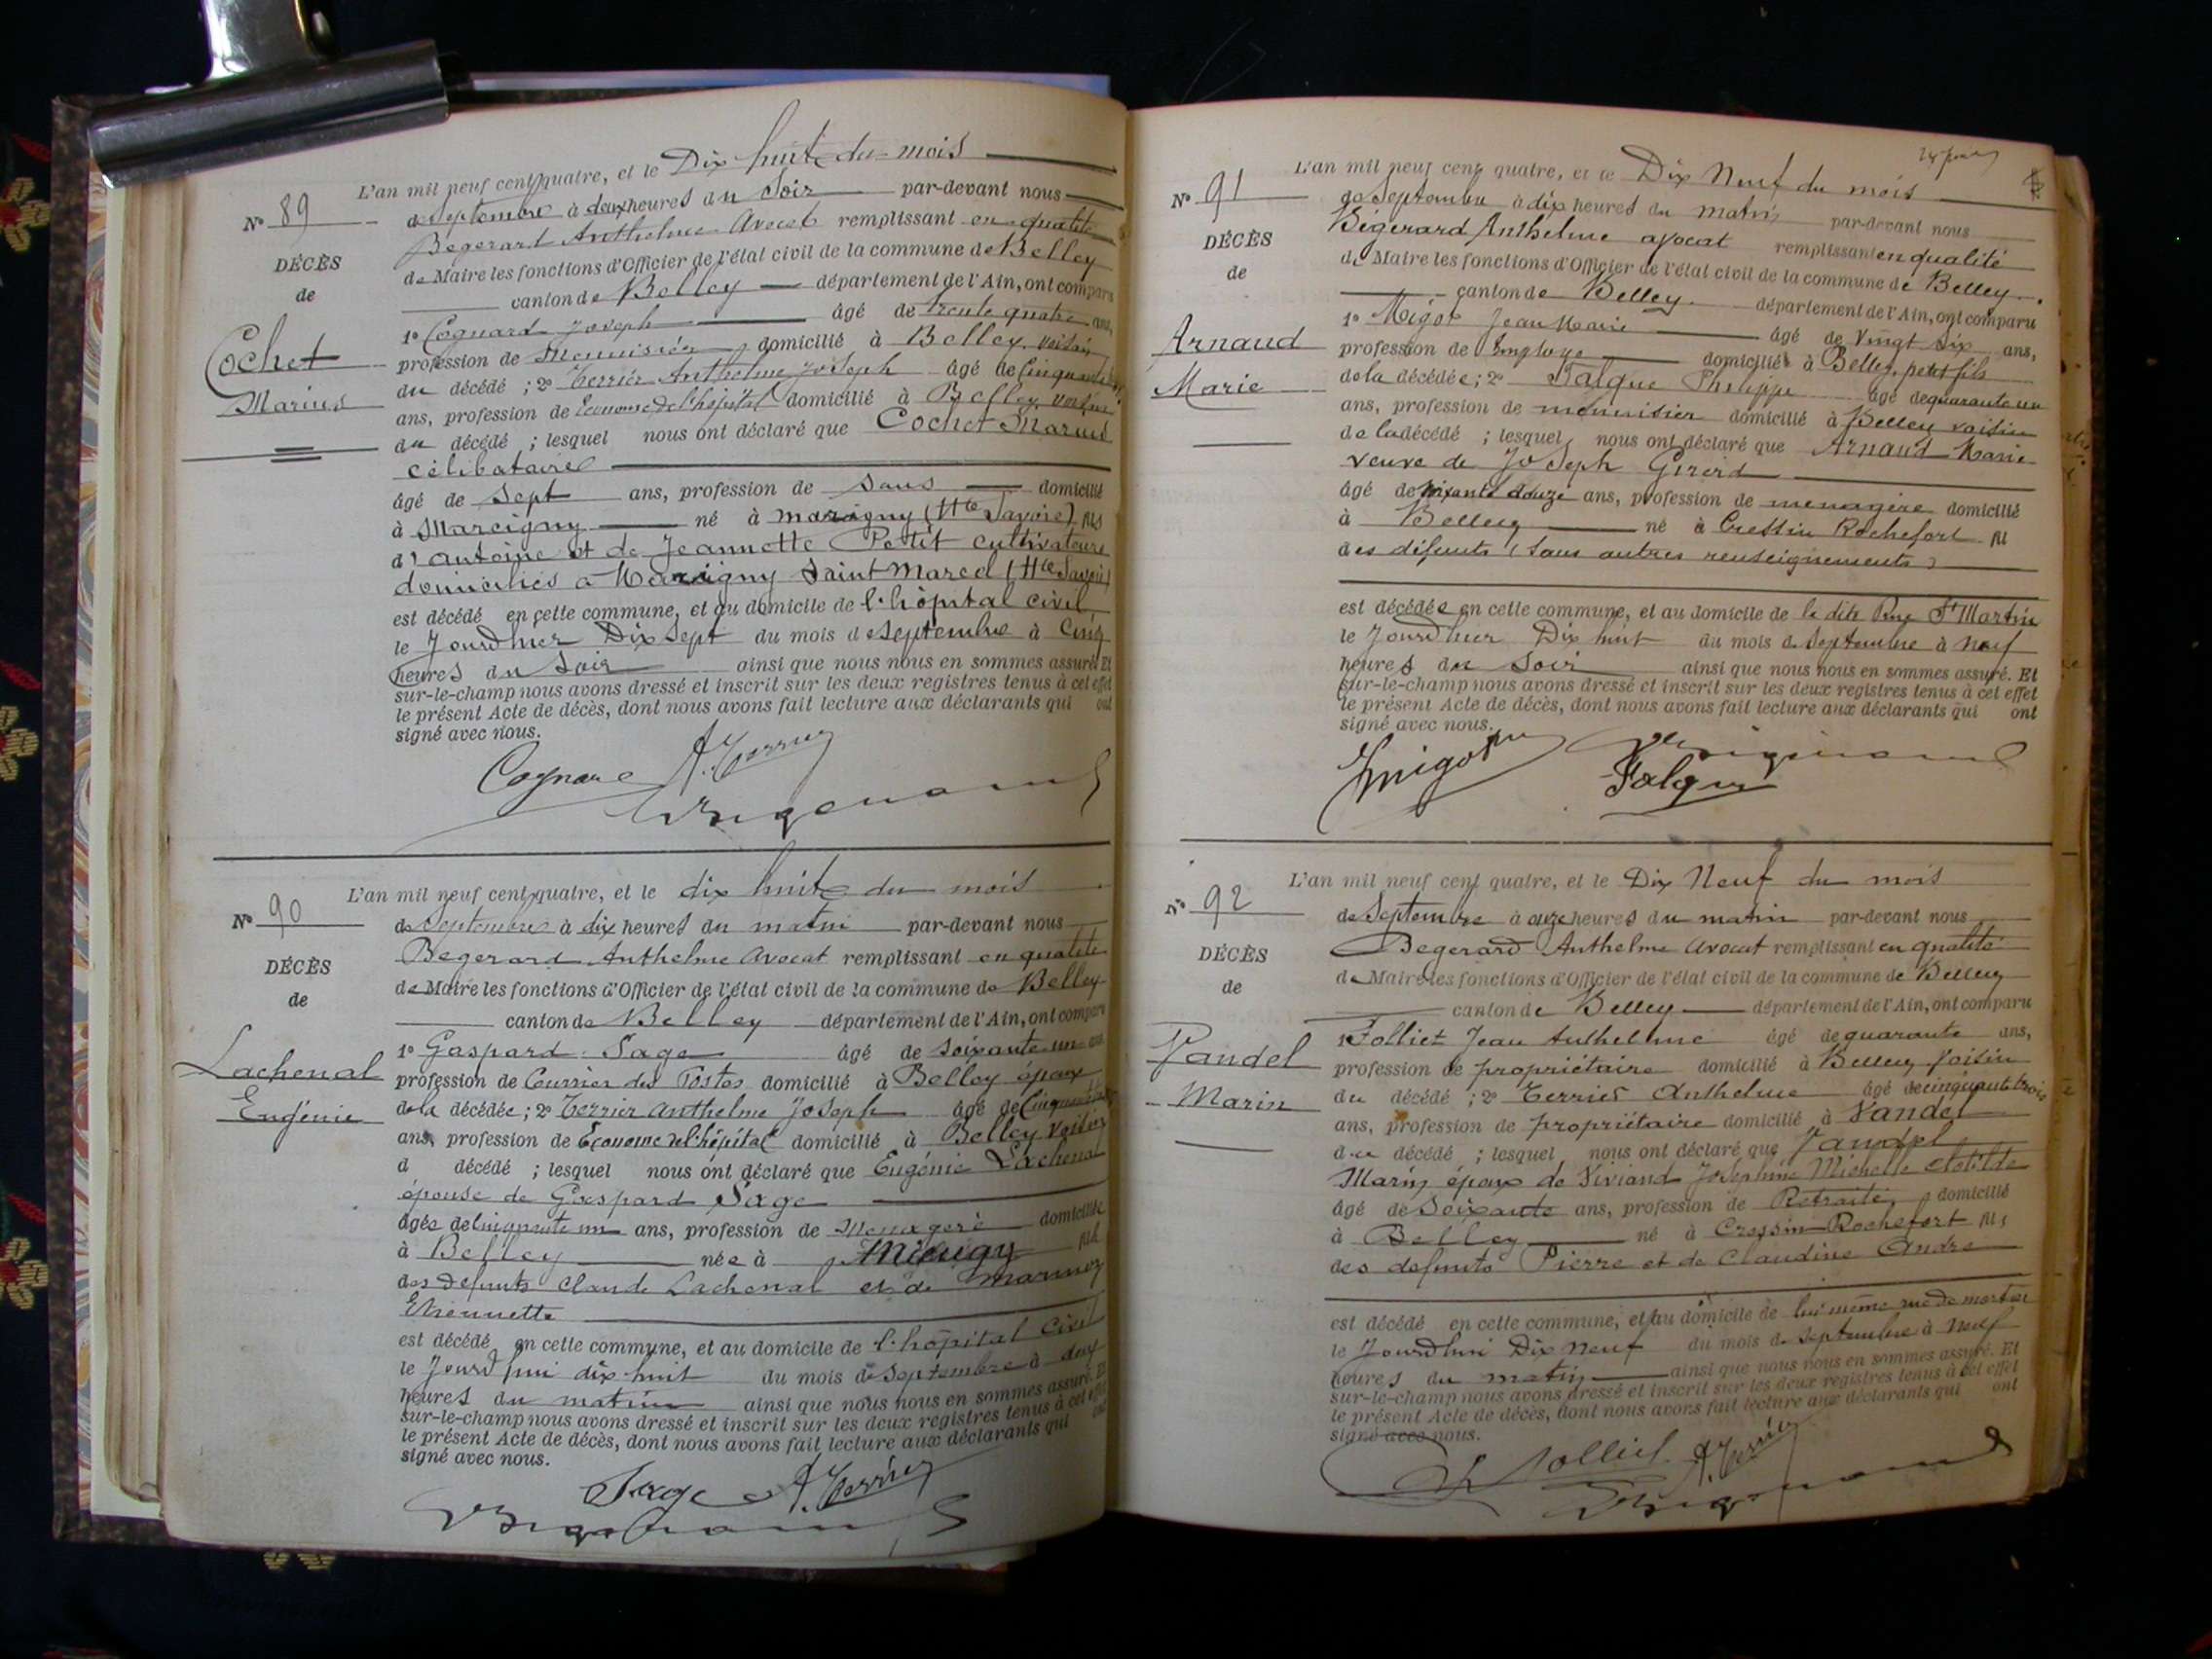 L'an mil neuf cent quatre, et le Dix huit du mois
No 89
de Septembre à deux heures du Soir par-devant nous
Begerard Anthelme Avocat remplissant en qualité
DÉCÈS
de Maire les fonctions d'Officier de l'état civil de la commune de Belley
de
canton de Belley département de l'Ain, ont comparu
1o Cognard Joseph âgé de trente quatre ans,
Cochet
profession de Menuisier domicilié à Belley, voisin
du décédé ; 2o Terrier Anthelme Joseph âgé de Cinquante
Marius
ans, profession de Econome de l'hôpital domicilié à Belley voisin
du décédé ; lesquel nous ont déclaré que Cochet Marius
célibataire
âgé de Sept ans, profession de Sans domicilié
à Marcigny né à Marigny (Hte Savoie) fils
d'Antoine et de Jeannette Petit cultivateurs
domiciliés à Marigny Saint Marcel (Hte Savoie)
est décédé en cette commune, et au domicile de l'hôpital civil
le Jourd'hier Dix Sept du mois de Septembre à Cinq
heures du Soir ainsi que nous nous en sommes assuré. Et
sur-le-champ nous avons dressé et inscrit sur les deux registres tenus à cet effet
le présent Acte de décès, dont nous avons fait lecture aux déclarants qui ont
signé avec nous.
Cognard A. Terrier
L'an mil neuf cent quatre, et le dix huit du mois
No 90
de Septembre à dix heures du matin par-devant nous
Begerard Anthelme Avocat remplissant en qualité
DÉCÈS
de Maire les fonctions d'Officier de l'état civil de la commune de Belley
de
canton de Belley département de l'Ain, ont comparu
1o Gaspard Sage âgé de soixante un ans
Lachenal
profession de Courrier des Postes domicilié à Belley époux
Eugénie
de la décédée ; 2o Terrier Anthelme Joseph âgé de Cinquante
ans, profession de Econome de l'hôpital domicilié à Belley voisin
d décédé ; lesquel nous ont déclaré que Eugénie Lachenal
épouse de Gaspard Sage
âgée de Cinquante un ans, profession de Menagère domicilié
à Belley née à fille
des défunts Claude Lachenal et de
Etiennette
est décédé en cette commune, et au domicile de l'hôpital Civil
le Jourd'hui dix huit du mois de Septembre à deux
heures du matin ainsi que nous nous en sommes assuré. Et
sur-le-champ nous avons dressé et inscrit sur les deux registres tenus à cet effet
le présent Acte de décès, dont nous avons fait lecture aux déclarants qui ont
signé avec nous.
Sage A. Terrier
L'an mil neuf cent quatre, et le Dix Neuf du mois
No 91
de Septembre à dix heures du matin par-devant nous
Bégerard Anthelme avocat remplissant en qualité
DÉCÈS
de Maire les fonctions d'Officier de l'état civil de la commune de Belley
de
canton de Belley département de l'Ain, ont comparu
1o Migot Jean Marie âgé de Vingt Six ans,
Arnaud
profession de Employé domicilié à Belley, petit fils
Marie
de la décédée ; 2o Falque Philippe âgé de quarante un
ans, profession de menuisier domicilié à Belley voisin
de la décédé ; lesquel nous ont déclaré que Arnaud Marie
veuve de Joseph Girerd
âgé de soixante douze ans, profession de menagère domicilié
à Belley né à Cressin Rochefort fil
des défunts (sans autres renseignements)
est décédée en cette commune, et au domicile de la dite Rue St Martin
le Jourd'hier Dix huit du mois de Septembre à neuf
heures du Soir ainsi que nous nous en sommes assuré. Et
sur-le-champ nous avons dressé et inscrit sur les deux registres tenus à cet effet
le présent Acte de décès, dont nous avons fait lecture aux déclarants qui ont
signé avec nous.
JMigot
Falque
L'an mil neuf cent quatre, et le Dix Neuf du mois
No 92
de Septembre à onze heures du matin par-devant nous
Begerard Anthelme Avocat remplissant en qualité
DÉCÈS
de Maire les fonctions d'Officier de l'état civil de la commune de Belley
de
canton de Belley département de l'Ain, ont comparu
1o Folliet Jean Anthelme âgé de quarante ans,
Vandel
profession de propriétaire domicilié à Belley voisin
Marin
du décédé ; 2o Terrier Anthelme âgé de cinquante trois
ans, profession de propriétaire domicilié à Vandel
du décédé ; lesquel nous ont déclaré que Vandel
Marin époux de Viviand Joséphine Michelle Clotilde
âgé de Soixante ans, profession de Retraité domicilié
à Belley né à Cressin-Rochefort fils
des défunts Pierre et de Claudine André
est décédé en cette commune, et au domicile de lui même
le Jourd'hui Dix neuf du mois de Septembre à Neuf
heures du matin ainsi que nous nous en sommes assuré. Et
sur-le-champ nous avons dressé et inscrit sur les deux registres tenus à cet effet
le présent Acte de décès, dont nous avons fait lecture aux déclarants qui ont
signé avec nous.
Folliet A. Terrier